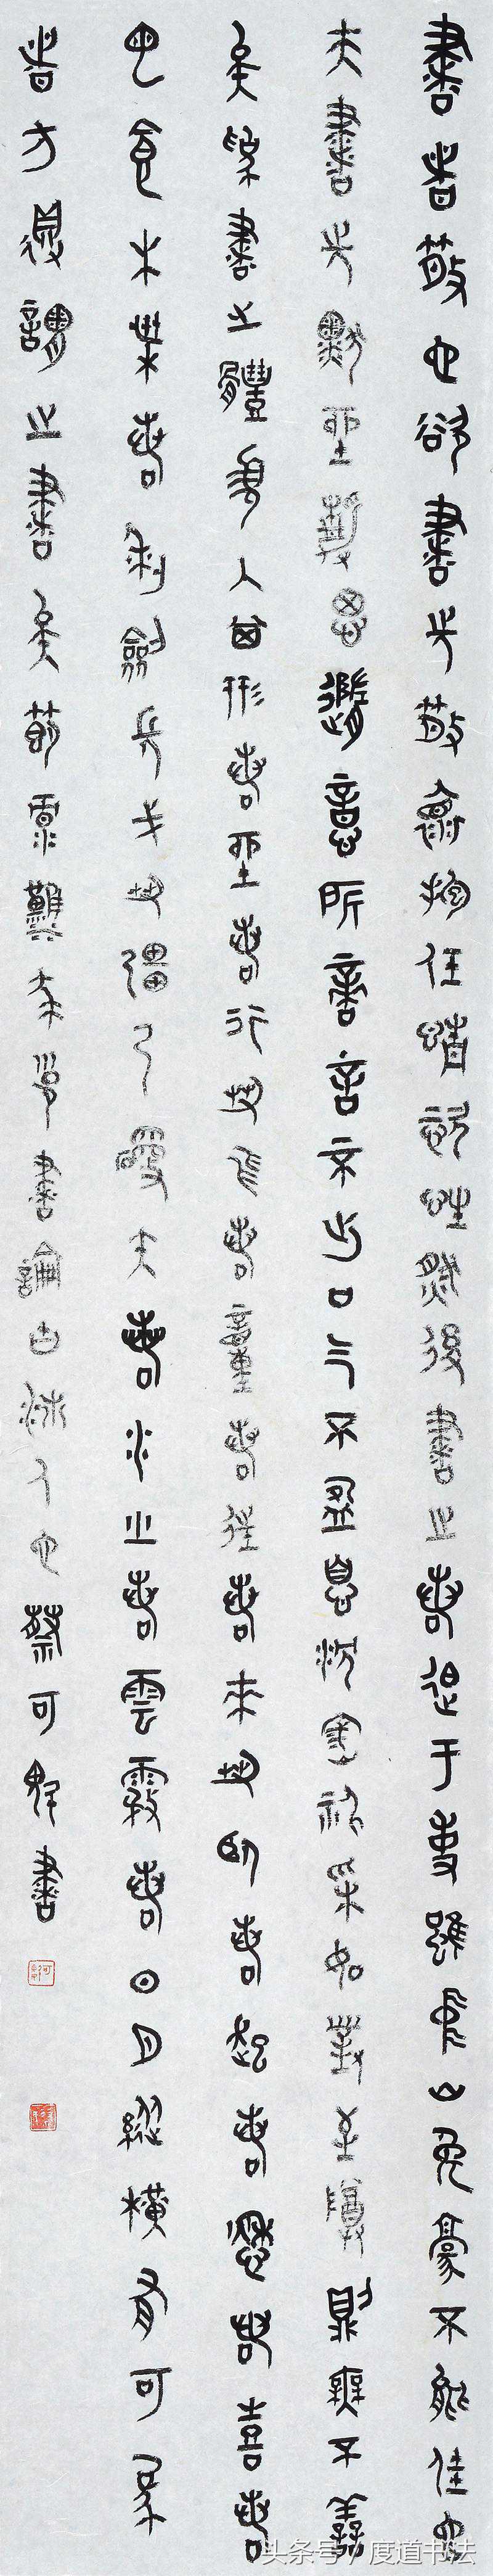 書者散也欲書先散懷抱任情恣性然後書之若迫于事雖中山兔豪不能佳也
夫書先默坐靜思隨意所適言不出口气不盈息沈密神采如對至尊則無不善
矣為書之體須入其形若坐若行如飛若動若往若來如臥若起若愁如喜若
虫食木葉若利劍長戈如彊弓硬矢若水火若雲霧若日月縱橫有可象
者方得謂之書矣節錄蔡邕書論古人也蔡可書
头条号/度道书法